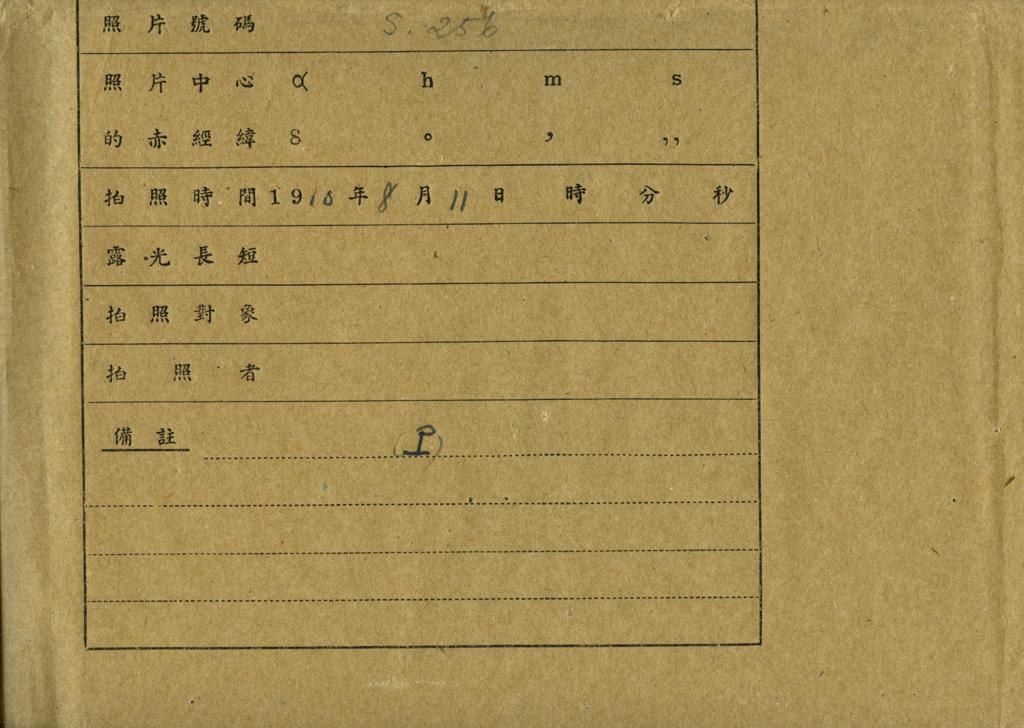 照片號碼 S. 256
照片中心 α h m s
的赤經緯 δ ° ′ ″
拍照時間 1910年8月11日 時 分 秒
露光長短
拍照對象
拍照者
備註 (P)